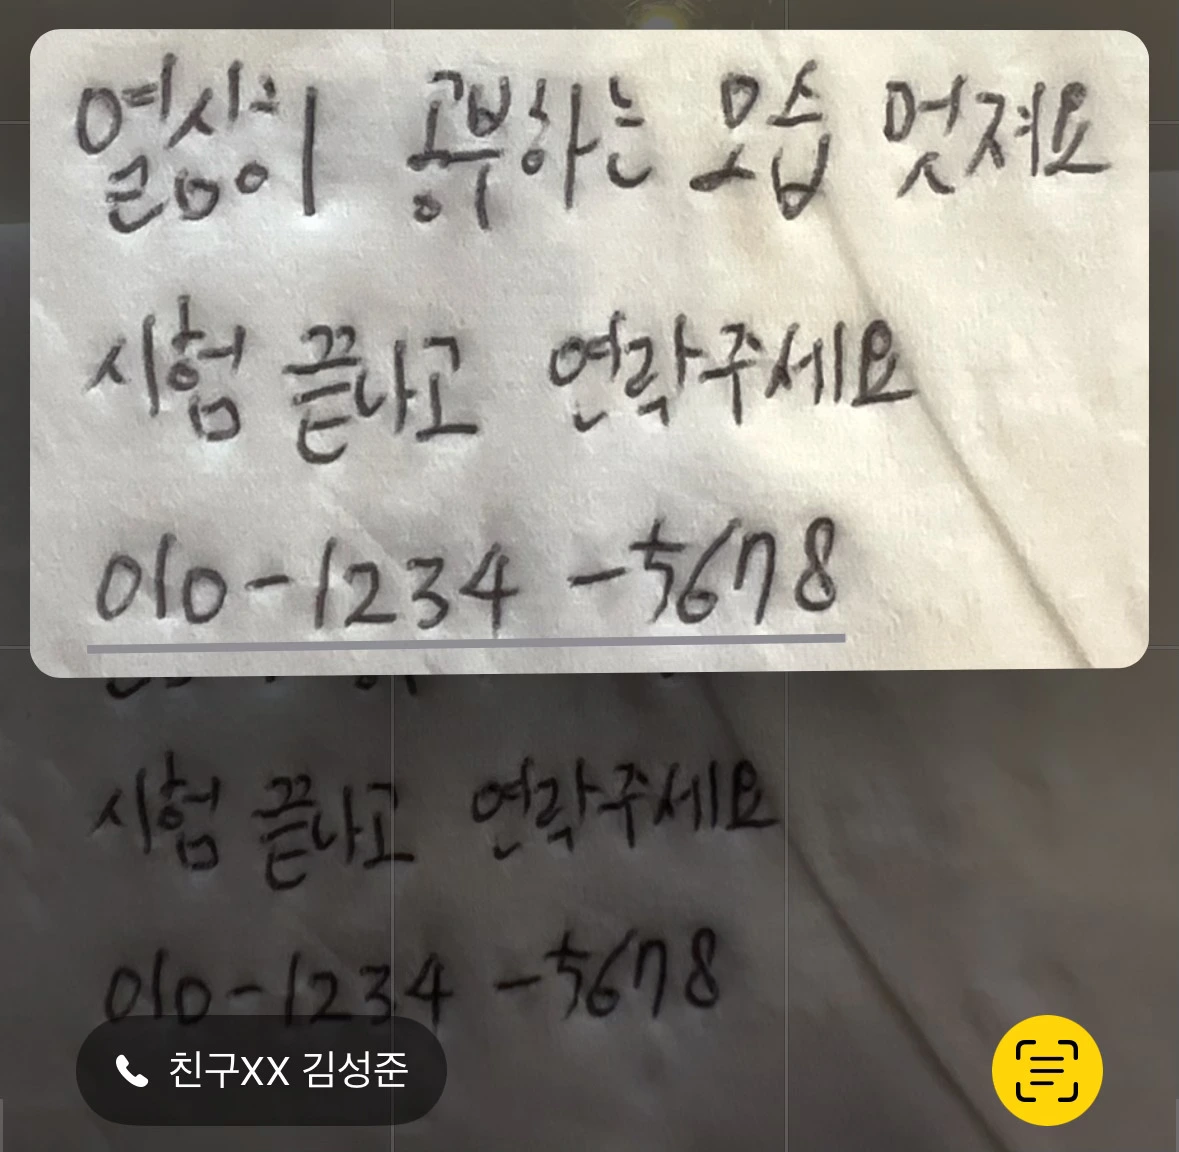 열심히 공부하는 모습 멋져요
시험 끝나고 연락주세요
010-1234-5678
시험 끝나고 연락주세요
010-1234-5678
친구XX 김성준